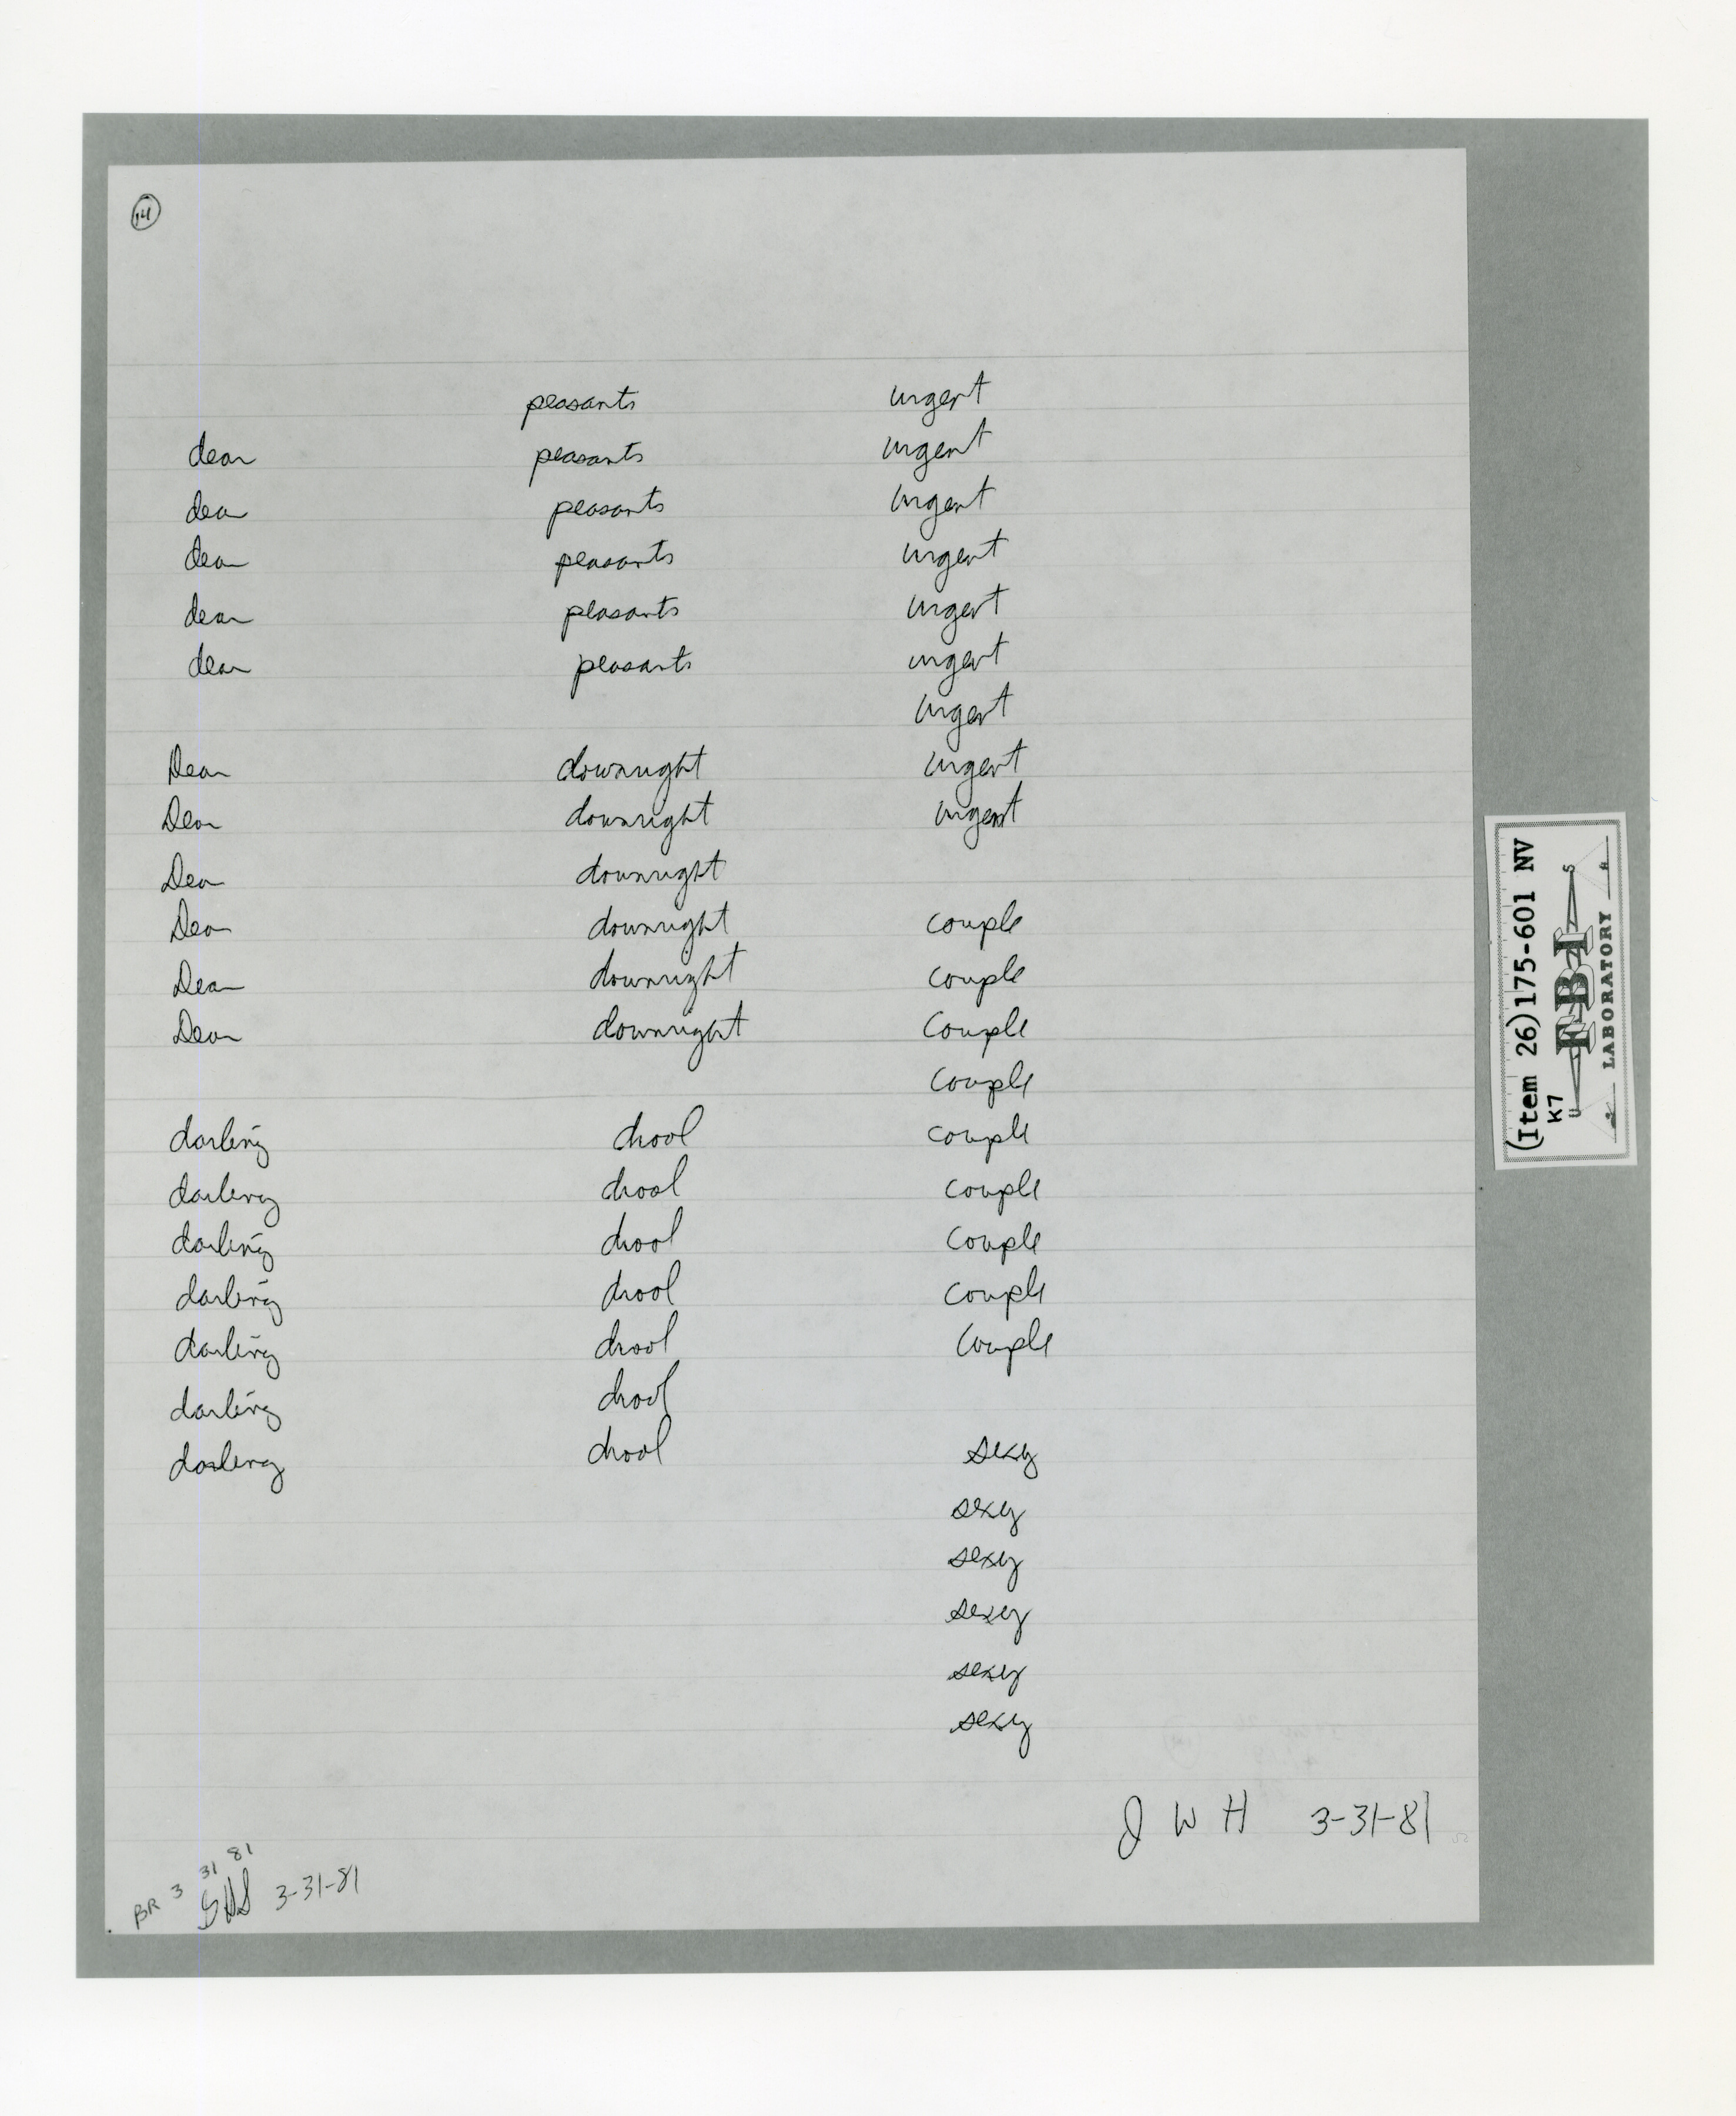 14
peasants urgent
dear peasants urgent
dear peasants urgent
dear peasants urgent
dear peasants urgent
dear peasants urgent
urgent
Dear downright urgent
Dear downright urgent
Dear downright
Dear downright couple
Dear downright couple
Dear downright couple
couple
darling drool couple
darling drool couple
darling drool couple
darling drool couple
darling drool couple
darling drool
darling drool sexy
sexy
sexy
sexy
sexy
sexy
J W H 3-31-81
BR 3 31 81
3-31-81
(Item 26)175-601 NV
K7
FBI
LABORATORY